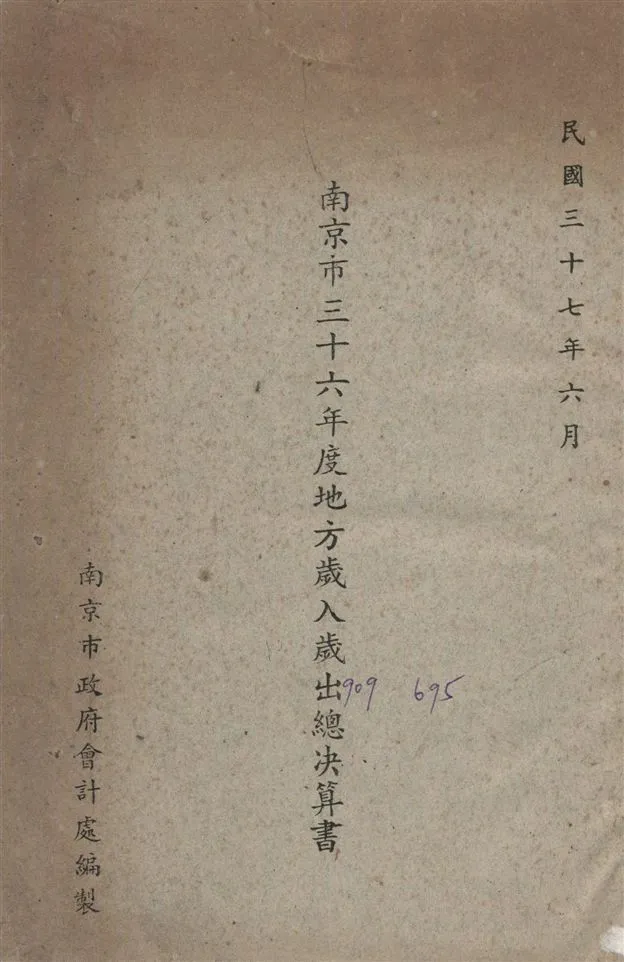 民國三十七年六月
南京市三十六年度地方歲入歲出總决算書
909 695
南京市政府會計處編製